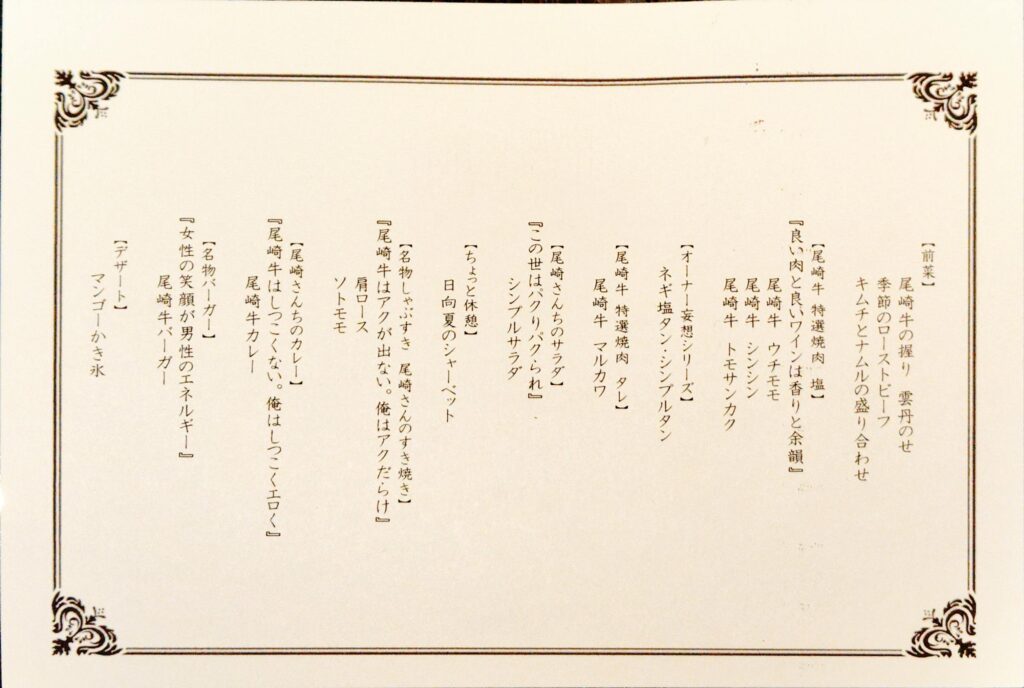 【前菜】
尾崎牛の握り　雲丹のせ
季節のローストビーフ
キムチとナムルの盛り合わせ
【尾崎牛　特選焼肉　塩】
『良い肉と良いワインは香りと余韻』
尾崎牛　ウチモモ
尾崎牛　シンシン
尾崎牛　トモサンカク
【オーナー妄想シリーズ】
ネギ塩タン・シンプルタン
【尾崎牛　特選焼肉　タレ】
尾崎牛　マルカワ
【尾崎さんちのサラダ】
『この世はパクりパクられ』
シンプルサラダ
【ちょっと休憩】
日向夏のシャーベット
【名物しゃぶすき　尾崎さんのすき焼き】
『尾崎牛はアクが出ない。俺はアクだらけ』
肩ロース
ソトモモ
【尾崎さんちのカレー】
『尾崎牛はしつこくない。俺はしつこくエロく』
尾崎牛カレー
【名物バーガー】
『女性の笑顔が男性のエネルギー』
尾崎牛バーガー
【デザート】
マンゴーかき氷